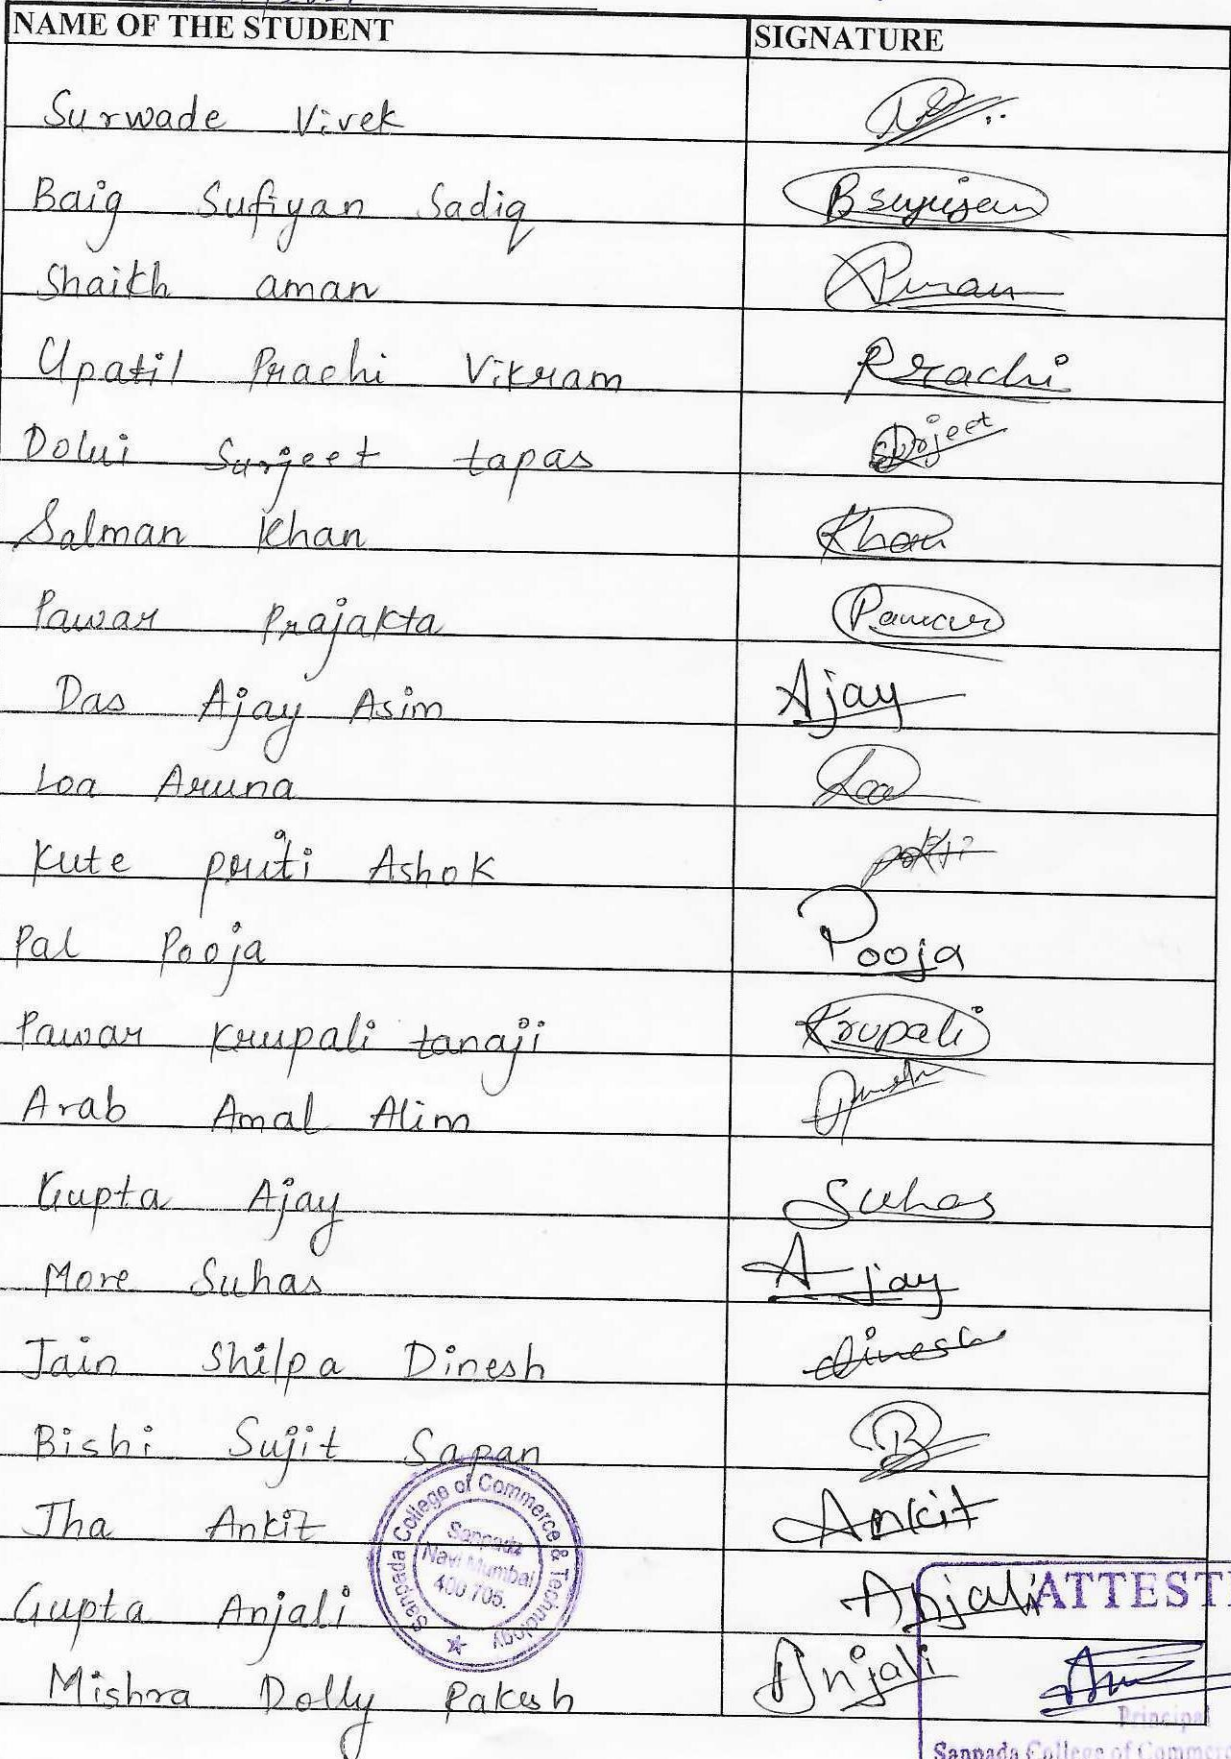 NAME OF THE STUDENT SIGNATURE
Surwade Vivek
Baig Sufiyan Sadiq Bsufiyan
Shaikh aman Aman
Upatil Prachi Vikram Prachi
Dolui Surjeet tapas Surjeet
Salman Khan Khan
Pawar Prajakta Pawar
Das Ajay Asim Ajay
Loa Aruna Loa
Kute priti Ashok
Pal Pooja Pooja
Pawar Krupali tanaji Krupali
Arab Amal Alim
Gupta Ajay Suhas
More Suhas Ajay
Jain Shilpa Dinesh Dinesh
Bishi Sujit Sapan B
Jha Ankit Ankit
Sanpada College of Commerce & Technology
Sanpada
Navi Mumbai
400 705.
Gupta Anjali Anjali
ATTEST
Mishra Dolly Rakesh Anjali
Principal
Sanpada College of Commer